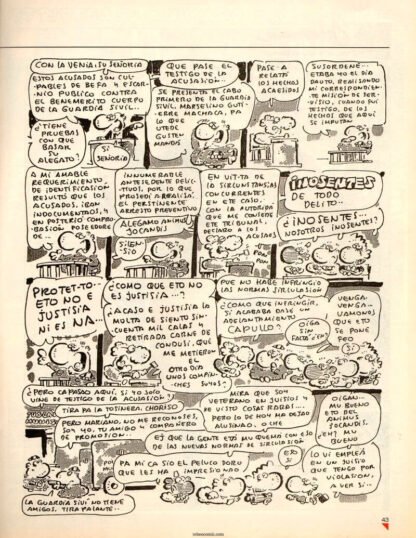 CON LA VENIA, SU SEÑORIA
ESTOS ACUSADOS SON CUL-
PABLES DE BEFA Y ESCAR-
NIO PUBLICO CONTRA
EL BENEMERITO CUERPO
DE LA GUARDIA SIVIL.
¿TIENE
PRUEBAS
CON QUE
BASAR
SU
ALEGATO?
SI
SEÑORIA
QUE PASE EL
TESTIGO DE
LA
ACUSASIÓN.
SE PRESENTA EL CABO
PRIMERO DE LA GUARDIA
SIVIL, MARSELINO GUTI-
ERRE MACHACA, PA
LO QUE
UTEDE
GUSTEN
MANDAS
PASE A
RELATÁ
LOS HECHOS
ACAESIDOS
SUSORDENE...
ETABA YO EL DIA
DAUTO, REALISANDO
MI CORRESPONDIEN-
TE MISION DE SER-
VISIO, CUANDO FUI
TESTIGO, DE LOS
HECHOS QUE AQUI
SE IMPUTAN
A MI AMABLE
REQUERIMIENTO,
DE IDENTIFICASION
RESULTÓ QUE LOS
ACUSADOS, IBAN
INDOCUMENTAOS, Y
EN POSTERIO COMPRO-
BASIÓN, POSEEDORE
DE...
INNUMERABLE
ANTESEDENTE DELIC-
TIVOS, POR LO QUE
PROSEDI A REALISÁ,
EL PERTINENTE
ARRESTO PREVENTIVO
ALEGAMO ANIMUS
JOCANDIS
SILEN-
SIO
EN VIT-TA DE
LA SIRCUNSTANSIAS
CONCURRENTES
EN ETE CASO,
CON LA AUTORIDÁ
QUE ME CONSEDE
ETE TRIBUNAL,
DECLARO A LOS
ACUSAOS
¡INOSENTES
DE TODO
DELITO..
¿INOSENTES...
NOSOTROS INOSENTES?
PROTET-TO...
ETO NO E
JUSTISIA
NI ES NA...
¿COMO QUE ETO NO
ES JUSTISIA..?
¿ACASO E JUSTISIA LA
MULTA DE SIENTO SIN-
CUENTA MIL CALAS Y
RETIRADA CARNE DE
CONDUSI, QUE
ME METIERON
EL
OTRO DIA
UNOS COMPIN-
CHES SUYOS?
PUE NO HABE INFRINGIO
LAS NORMAS SIRCULASION
¿COMO QUE INFRINGIR,
SI ACABABA DASE UN
ADELANTAMIENTO
CAPULLO?
OIGA
SIN
FALTÁ ¿EH?
VENGA-
VENGA...
VAMONOS
QUE ETO
SE PONE
FEO
SI
¿PERO CAPASAO AQUI, SI YO SOLO
VINE DE TESTIGO DE LA ACUSASION?
TIRA PA LA TOSINERA, CHORISO
PERO MARIANO, NO ME RECONOSES,
SOY YO, TU AMIGO Y COMPAÑERO
DE PROMOSION...
LA GUARDIA SIVÍ NO TIENE
AMIGOS, TIRA PALANTE...
MIRA QUE SOY
VETERANO EN JUISIOS Y
HE VISTO COSAS RARAS...
PERO LO DE HOY MA DEJAO
ALUSINAO, OCHE
ES QUE LA GENTE ETÁ MU QUEMÁ CON ESO
DE LAS NUEVAS NORMAS DE SIRCULASION
PA MI CA SIO EL PELUCO DORU
QUE LES HA IMPRESIONAO
ESO
SI
OIGAN...
MU BUENO
ETO DEL
ANIMUS
JOCANDIS.
¿EH? MU
BUENO
LO VI EMPLEÁ
EN UN JUISIO
QUE TENGO POR
VIOLASION,
A VER SI...
43